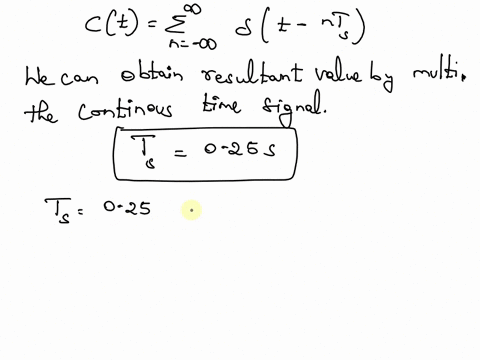 C(t) = ∑_{n=-∞}^{∞} δ(t - nT_s)
We can obtain resultant value by multi.
the continous time signal.
T_s = 0.25 s
T_s = 0.25